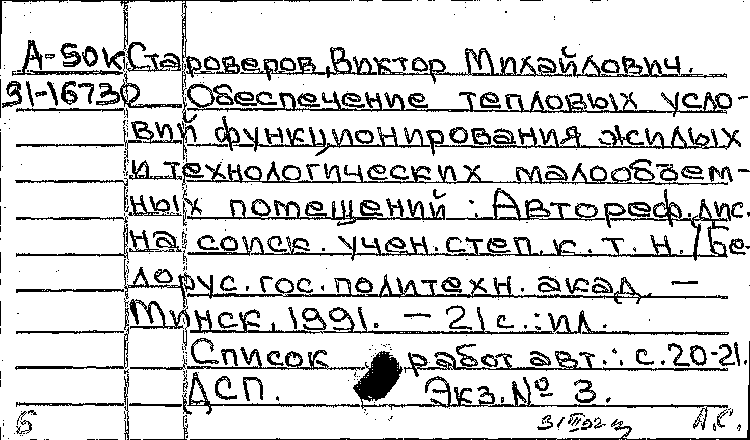 А-50к Староверов, Виктор Михайлович.
91-16730 Обеспечение тепловых усло-
вий функционирования жилых
и технологических малообъем-
ных помещений : Автореф. дис.
на соиск. учен. степ. к. т. н. / Бе-
лорус. гос. политехн. акад. —
Минск, 1991. — 21 с. : ил.
Список работ авт.: с. 20-21.
ДСП. Экз. № 3.
Б А.С.